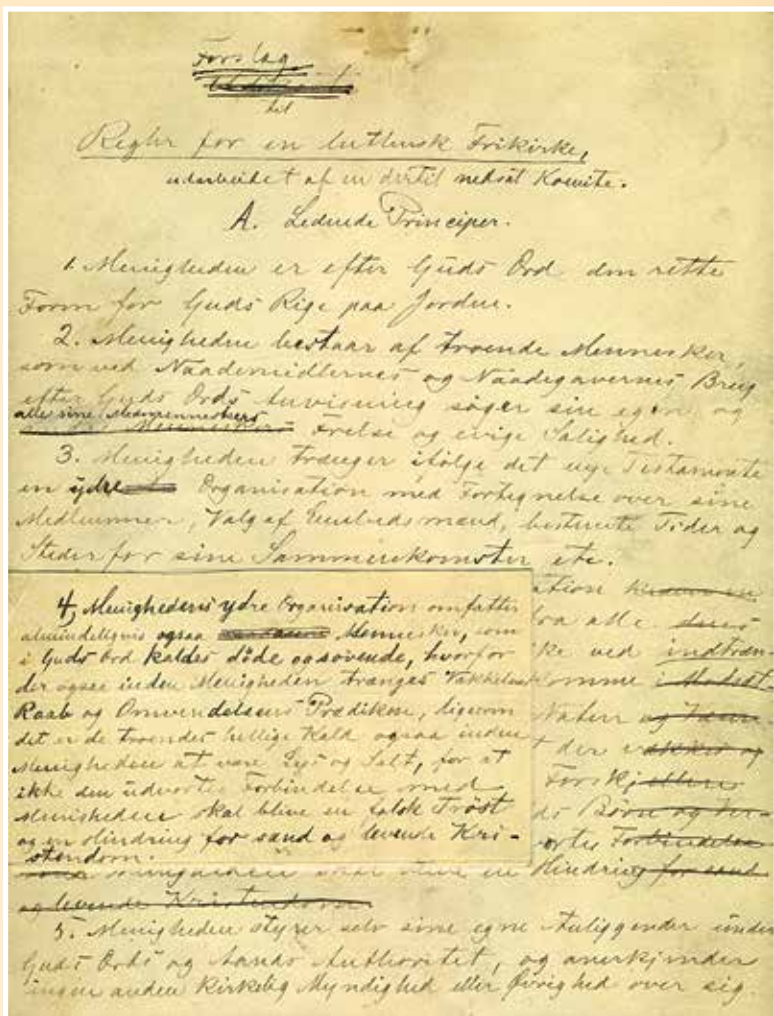 Forslag
til
Regler for en luthersk Frikirke,
udarbeidet af en dertil nedsat Komite.
A. Ledende Principer.
1. Menigheden er efter Guds Ord den rette
Form for Guds Rige paa Jorden.
2. Menigheden bestaar af troende Mennesker,
som ved Naademidlernes og Naadegavernes Brug
efter Guds Ords Anvisning søger sin egen og
alle sine Medmenneskers Frelse og evige Salighed.
3. Menigheden trænger ifølge det nye Testamente
en ydre Organisation med Fortegnelse over sine
Medlemmer, Valg af Embedsmænd, bestemte Tider og
Steder for sine Sammenkomster etc.
4, Menighedens ydre Organisation omfatter
almindeligvis ogsaa Mennesker, som
i Guds Ord kaldes døde og sovende, hvorfor
der ogsaa inden Menigheden trænges Vækkelses
Raab og Omvendelsens Prædiken, ligesom
det er de troendes hellige Kald ogsaa inden
Menigheden at være Lys og Salt, for at
ikke den udvortes Forbindelse med
Menigheden skal blive en falsk Trøst
og en Hindring for sand og levende Kri-
stendom.
ation
fra alle dens
ke ved indtræn-
komme
Naturr
t der
Forskjellen
ds Børn og Ver-
vortes Forbindelse
skal blive en Hindring for sand
og levende Kristendom.
5. Menigheden styrer selv sine egne Anliggender under
Guds Ords og Aands Authoritet, og anerkjender
ingen anden kirkelig Myndighed eller Øvrighed over sig.